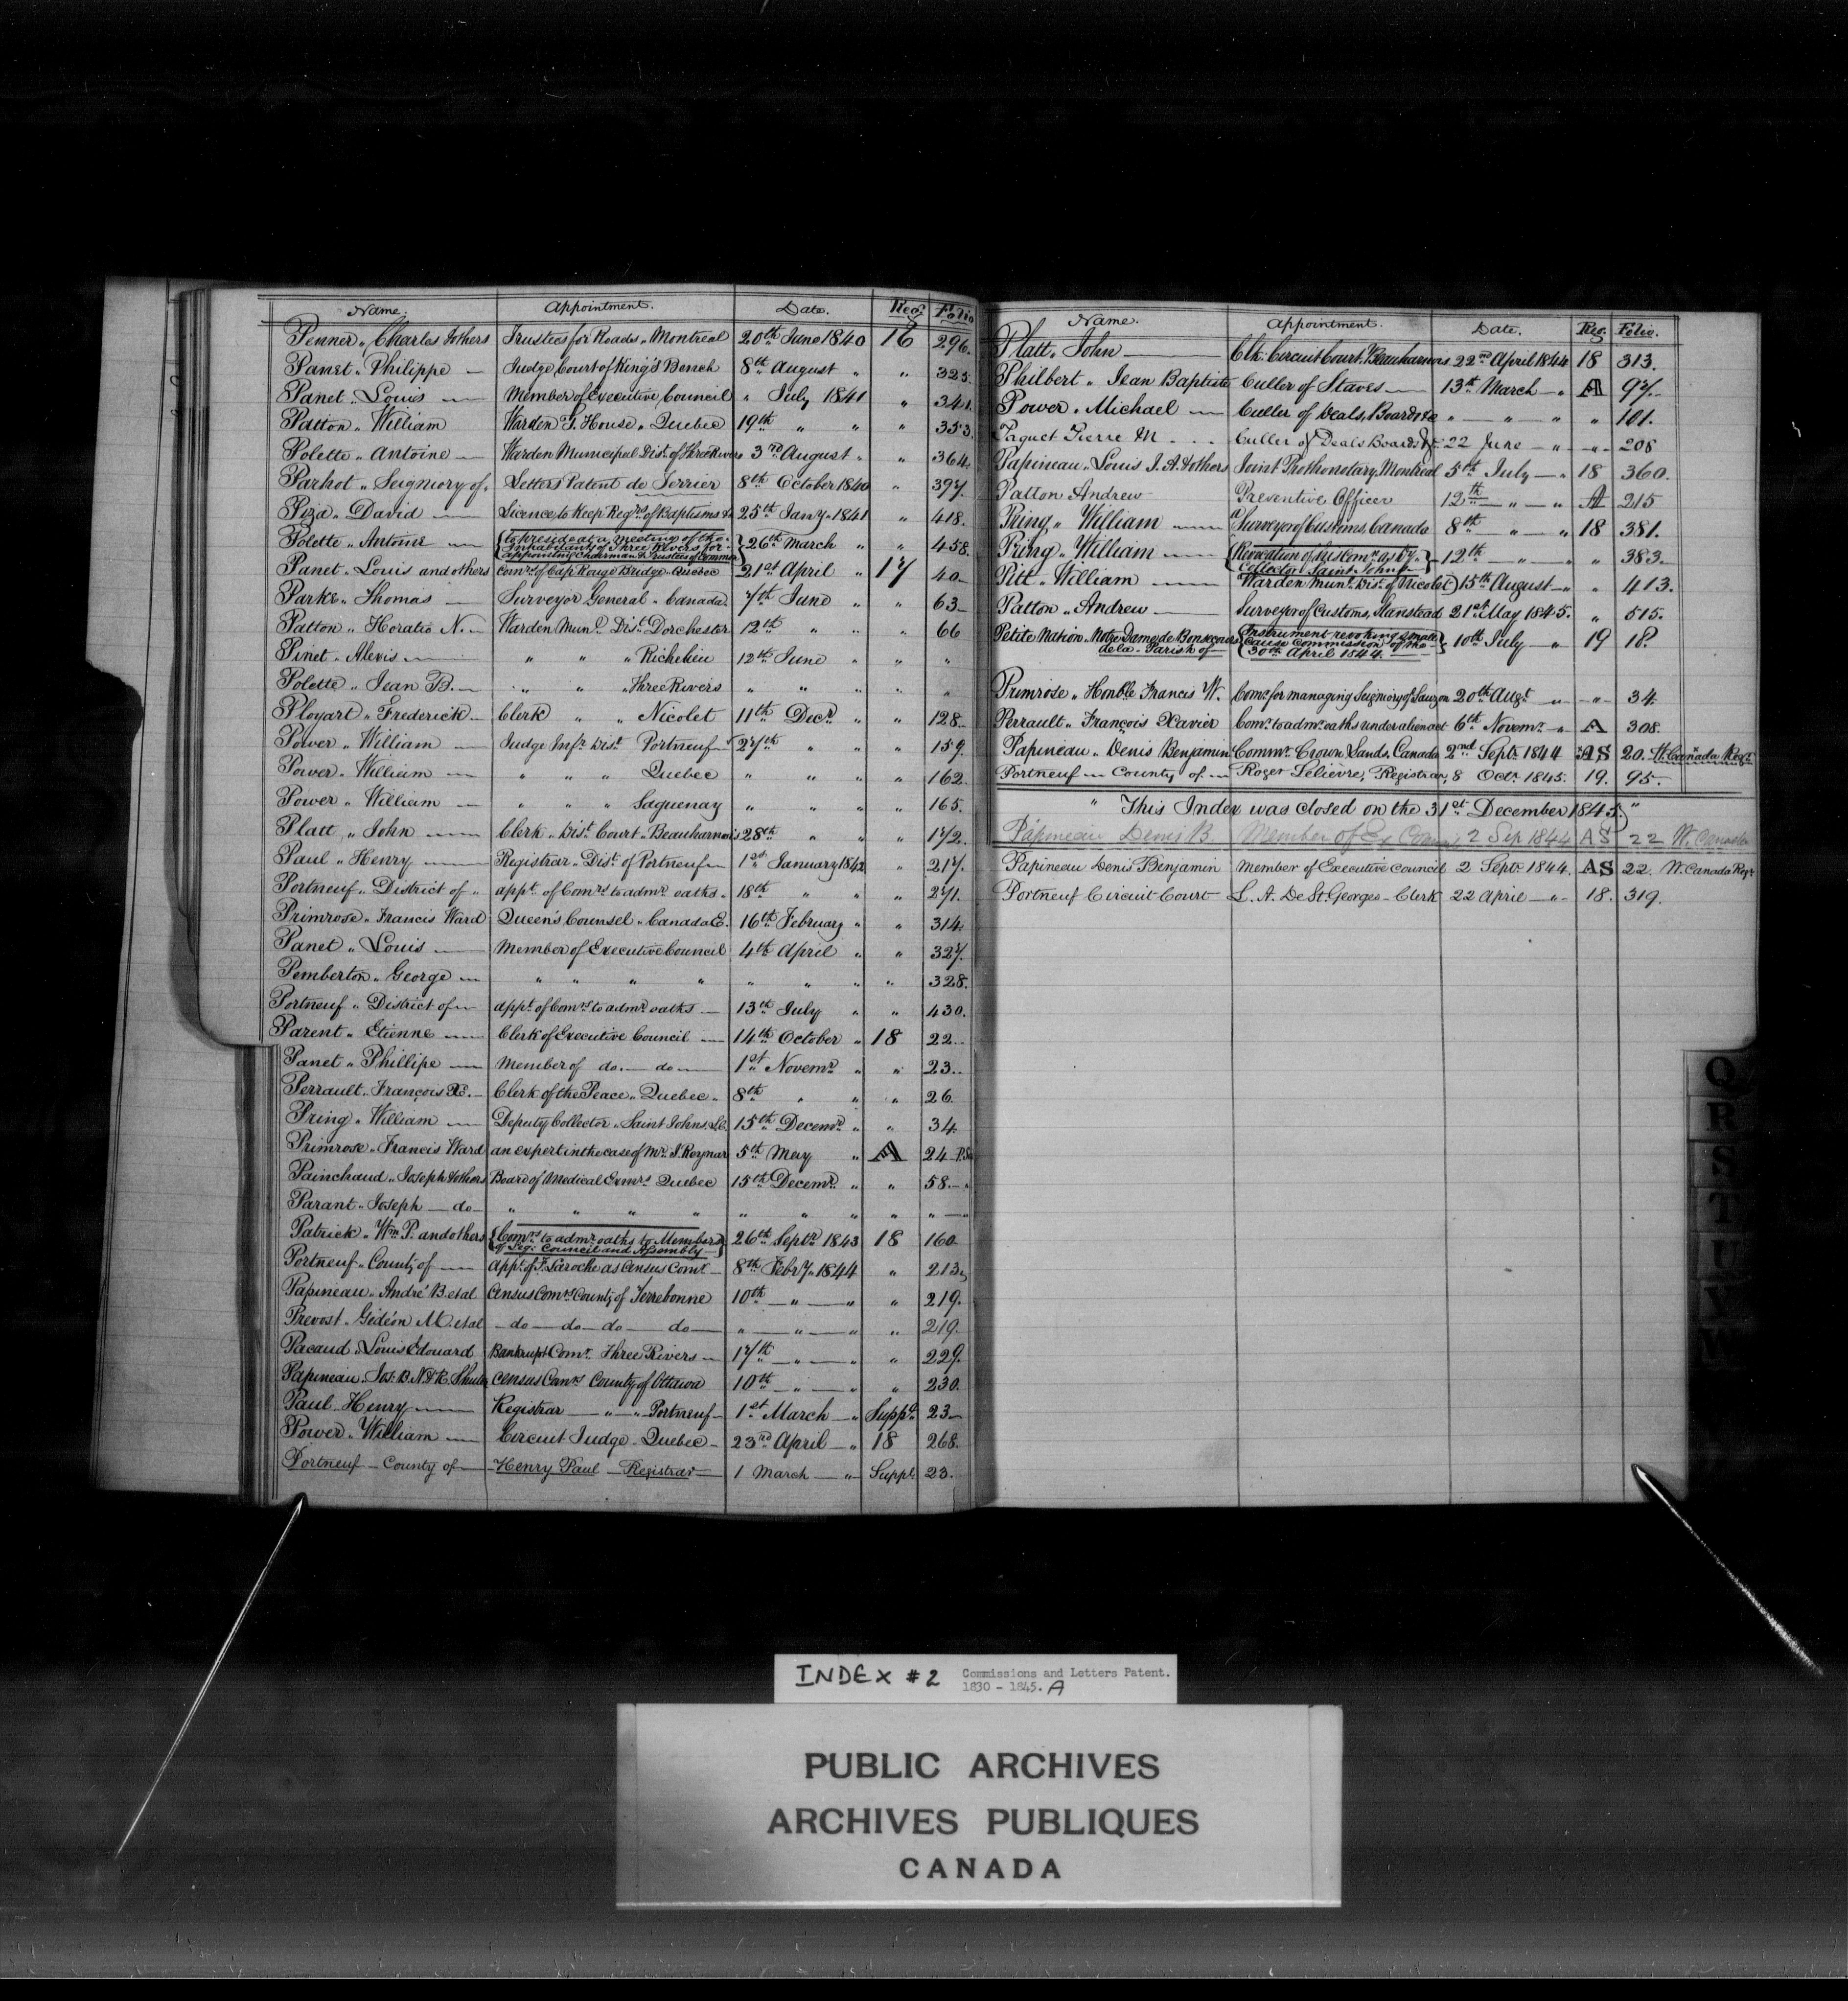 Name. Appointment. Date. Reg. Folio
Penner „ Charles &others Trustees for Roads „ Montreal 20th June 1840 16 296.
Panet „ Philippe — Judge, Court of King's Bench 8th August „ „ 325.
Panet „ Louis — Member of Executive Council „ July 1841 „ 341.
Patton „ William Warden T. House „ Quebec 19th „ „ „ 353.
Polette „ Antoine — Warden Municipal Dist. of Three Rivers 3rd August „ „ 364.
Parhot „ Seigniory of „ Letters Patent de Terrier 8th October 1840 „ 397.
Piza „ David — Licence to keep Regrs of Baptisms &c 25th Jany. 1841 „ 418.
Polette „ Antoine — {to preside at a meeting of the inhabitants of Three Rivers for appointing Chairman & Trustees of Common} 26th March „ „ 458.
Panet „ Louis and others Comrs of Cap Rouge Bridge „ Quebec 21st April „ 17 40—
Parke „ Thomas — Surveyor General „ Canada 7th June „ „ 63—
Patton „ Horatio N. — Warden Munl. Dist. Dorchester 12th „ „ „ 66
Pinet „ Alexis — „ „ „ Richelieu 12th June „ „ „
Polette „ Jean B. — „ „ „ Three Rivers „ „ „ „ „
Ployart „ Frederick — Clerk „ „ Nicolet 11th Decr. „ „ 128—
Power „ William — Judge Infr. Dist. Portneuf 27th „ „ „ 159.
Power „ William — „ „ „ Quebec „ „ „ „ 162.
Power „ William — „ „ „ Saguenay „ „ „ „ 165.
Platt „ John — Clerk „ Dist. Court „ Beauharnois 28th „ „ „ 172.
Paul „ Henry — Registrar „ Dist. of Portneuf — 1st January 1842 „ 217.
Portneuf „ District of „ appt. of Comrs to admr. oaths „ 18th „ „ „ 271.
Primrose „ Francis Ward Queen's Counsel „ Canada E. 16th February „ „ 314.
Panet „ Louis — Member of Executive Council 4th April „ „ 327.
Pemberton „ George — „ „ „ „ „ „ „ „ 328.
Portneuf „ District of — appt. of Comrs to admr. oaths — 13th July „ „ 430.
Parent „ Etienne — Clerk of Executive Council — 14th October „ 18 22.
Panet „ Phillipe — Member of do. — do — 1st Novemr. „ „ 23.
Perrault „ François X. — Clerk of the Peace „ Quebec „ 8th „ „ „ 26
Pring „ William — Deputy Collector „ Saint Johns, L.C. 15th Decemr. „ „ 34.
Primrose „ Francis Ward an expert in the case of Mr. J. Reynar 5th May „ A 24
Painchaud „ Joseph &others Board of Medical Exmrs. Quebec 15th Decemr. „ „ 58.
Parant „ Joseph — do — „ „ „ „ „ „ „ „ „
Patrick „ Wm. P. and others {Comrs to admr. oaths to Members of Leg. Council and Assembly} 26th Septr. 1843 18 160
Portneuf „ County of — appt. of F. Laroche as Census Comr. — 8th Febry. 1844 „ 213
Papineau „ André B. et al Census Comrs County of Terrebonne 10th — „ — „ „ 219.
Prevost „ Gédéon M. et al — do — do — do — do — „ — „ — „ „ 219.
Pacaud „ Louis Edouard Bankrupt Comr. Three Rivers — 17th — „ — „ „ 229.
Papineau „ Jos. B. N. & K. Census Comrs County of Ottawa 10th — „ — „ „ 230.
Paul „ Henry — Registrar — „ — „ Portneuf — 1st March — „ Suppt. 23—
Power „ William — Circuit Judge „ Quebec — 23rd April — „ 18 268.
Portneuf — County of — Henry Paul — Registrar — 1 March — „ Suppt. 23.
Name. Appointment. Date. Reg. Folio.
Platt „ John — Clk. Circuit Court, Beauharnois 22nd April 1844 18 313.
Philbert „ Jean Baptiste Culler of Staves — 13th March — „ A 97.
Power „ Michael — Culler of Deals, Boards &c „ — „ — „ „ 101.
Paquet Pierre M . . . Culler of Deals Boards &c 22 June — „ — „ 208
Papineau „ Louis J. A. &others Joint Prothonotary, Montreal 5th July — „ 18 360.
Patton Andrew Preventive Officer 12th — „ — „ A 215
Pring „ William — a Surveyor of Customs, Canada 8th „ — „ 18 381.
Pring „ William — {Revocation of his Comn. as Dy. Collector Saint Johns} 12th — „ — „ „ 383.
Pitt „ William — Warden Munl. Dist. of Nicolet 15th August — „ „ 413.
Patton „ Andrew — Surveyor of Customs, Stanstead 21st May 1845. „ 515.
Petite Nation „ Notre Dame de Bonsecours de la — Parish of — {Instrument revoking a mala cause commission of the 30th April 1844.} 10th July — „ 19 18.
Primrose „ Honble Francis W. Comr. for managing Seigniory of Lauzon 20th Augt — „ — „ 34.
Perrault „ François Xavier Comr. to admr. oaths under alien act 6th Novemr. — „ A 308.
Papineau „ Denis Benjamin Commr. Crown Lands, Canada 2nd Septr. 1844 AS 20. W. Canada Regr.
Portneuf — County of — Roger Lelièvre, Registrar, 8 Octr. 1845. 19. 95—
" This Index was closed on the 31st December 1845. "
Papineau Denis B. Member of Ex Council 2 Sep 1844 AS 22 W. Canada
Papineau Denis Benjamin Member of Executive Council 2 Septr. 1844. AS 22. W. Canada Regr
Portneuf Circuit Court — L. A. De St. Georges — Clerk 22 april — „ — 18. 319.
Q
R
S
T
U
V
W
INDEX #2 Commissions and Letters Patent.
1830 - 1845. A
PUBLIC ARCHIVES
ARCHIVES PUBLIQUES
CANADA